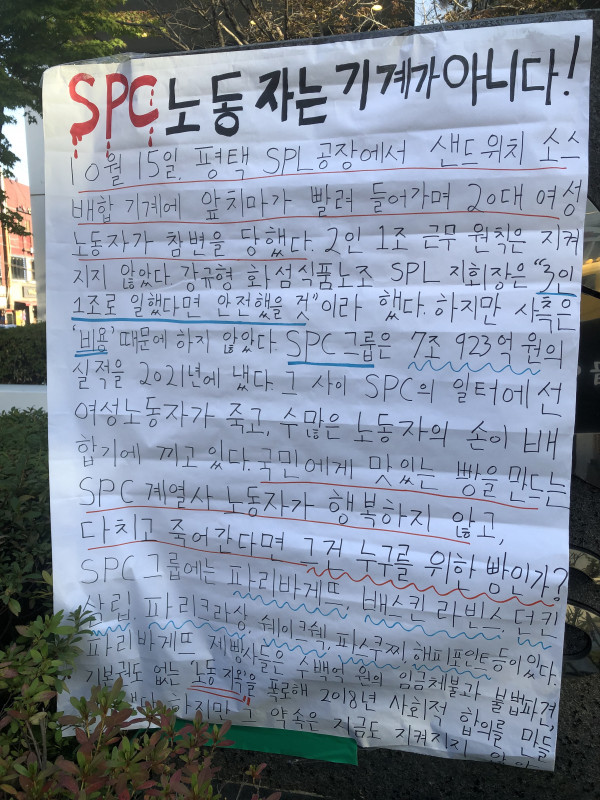 SPC 노동자는 기계가 아니다!
10월 15일, 평택 SPL공장에서 샌드위치 소스
배합 기계에 앞치마가 빨려 들어가며 20대 여성
노동자가 참변을 당했다. 2인 1조 근무 원칙은 지켜
지지 않았다. 강규형 화섬식품노조 SPL 지회장은 "3인
1조로 일했다면 안전했을 것"이라 했다. 하지만 사측은
'비용' 때문에 하지 않았다. SPC그룹은 7조 923억 원의
실적을 2021년에 냈다. 그 사이 SPC의 일터에선
여성노동자가 죽고, 수많은 노동자의 손이 배
합기에 끼고 있다. 국민에게 맛있는 빵을 만드는
SPC 계열사 노동자가 행복하지 않고,
다치고 죽어간다면 그건 누구를 위한 빵인가?
SPC그룹에는 파리바게뜨, 배스킨 라빈스, 던킨
삼립, 파리크라상, 쉐이크쉑, 파스쿠찌, 해피포인트 등이 있다.
파리바게뜨 제빵사들은 수백억 원의 임금체불과 불법파견,
기본권도 없는 "노동지옥"을 폭로해 2018년 사회적 합의를 만들
하지만 그 약속은 지금도 지켜지지